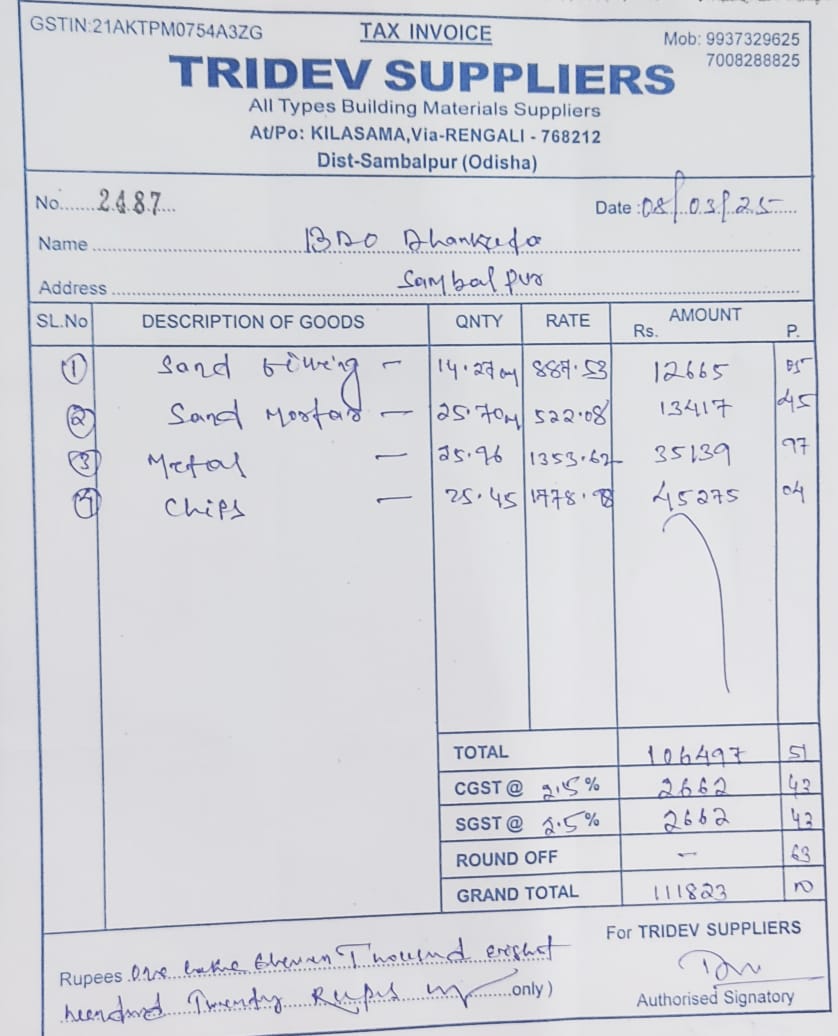 GSTIN:21AKTPM0754A3ZG
TAX INVOICE
Mob: 9937329625
7008288825
TRIDEV SUPPLIERS
All Types Building Materials Suppliers
At/Po: KILASAMA,Via-RENGALI - 768212
Dist-Sambalpur (Odisha)
No. 2487 Date :08/03/25
Name BDO Dhankuda
Address Sambalpur
SL.No DESCRIPTION OF GOODS QNTY RATE AMOUNT
Rs. P.
1 Sand filling - 14.27 887.53 12665 05
2 Sand Mortar - 25.70 522.08 13417 45
3 Metal - 25.96 1353.62 35139 97
4 Chips - 25.45 1778.98 45275 04
TOTAL 106497 51
CGST @ 2.5% 2662 43
SGST @ 2.5% 2662 43
ROUND OFF - 63
GRAND TOTAL 111823
For TRIDEV SUPPLIERS
Rupees One Eleven Thousand eight
Twenty only )
Authorised Signatory